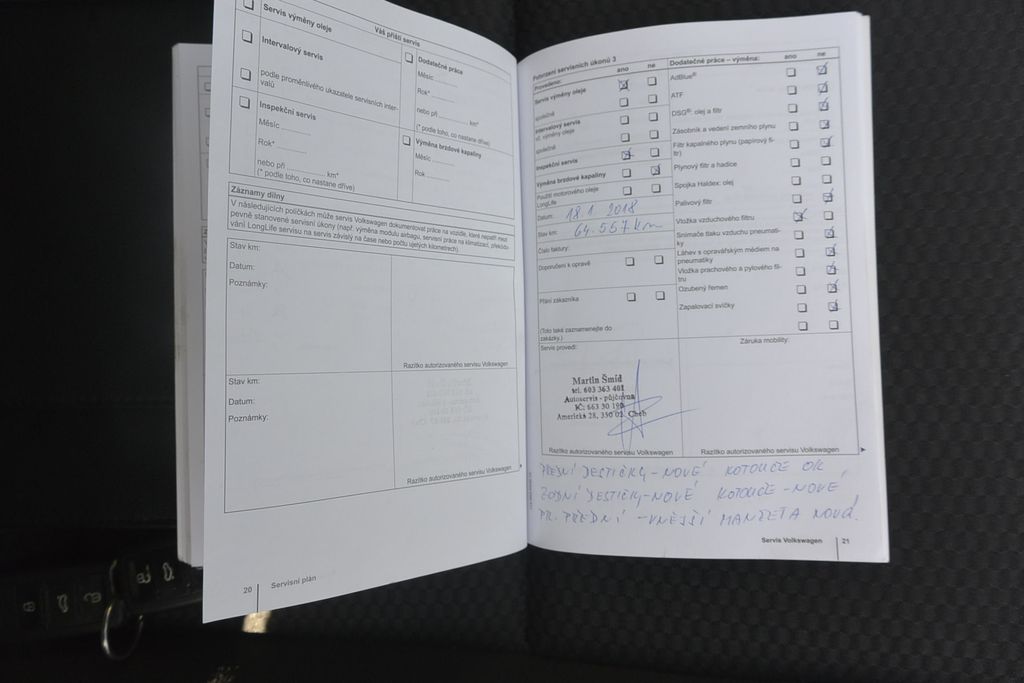 Váš příští servis
Servis výměny oleje
Intervalový servis
podle proměnlivého ukazatele servisních inter-
valů
Inspekční servis
Měsíc
Rok*
nebo při km*
(* podle toho, co nastane dříve)
Dodatečné práce
Měsíc
Rok*
nebo při km*
(* podle toho, co nastane dříve)
Výměna brzdové kapaliny
Měsíc
Rok
Záznamy dílny
V následujících políčkách může servis Volkswagen dokumentovat práce na vozidle, které nepatří mezi
pevně stanovené servisní úkony (např. výměna modulu airbagu, servisní práce na klimatizaci, překódo-
vání LongLife servisu na servis závislý na čase nebo počtu ujetých kilometrů).
Stav km:
Datum:
Poznámky:
Razítko autorizovaného servisu Volkswagen
Stav km:
Datum:
Poznámky:
Razítko autorizovaného servisu Volkswagen
20 Servisní plán
Potvrzení servisních úkonů 3
Provedeno: ano ne
Servis výměny oleje
společně
Intervalový servis
vč. výměny oleje
společně
Inspekční servis
Výměna brzdové kapaliny
Použití motorového oleje
LongLife
Datum: 18.1.2018
Stav km: 64.557 km
Číslo faktury:
Doporučení k opravě
Přání zákazníka
(Toto také zaznamenejte do
zakázky.)
Servis provedl:
Martin Šmíd
tel. 603 363 401
Autoservis - půjčovna
IČ: 663 30 190
Americká 28, 350 02 Cheb
Razítko autorizovaného servisu Volkswagen
Dodatečné práce – výměna: ano ne
AdBlue®
ATF
DSG®: olej a filtr
Zásobník a vedení zemního plynu
Filtr kapalného plynu (papírový fil-
tr)
Plynový filtr a hadice
Spojka Haldex: olej
Palivový filtr
Vložka vzduchového filtru
Snímače tlaku vzduchu pneumati-
ky
Láhev s opravářským médiem na
pneumatiky
Vložka prachového a pylového fil-
tru
Ozubený řemen
Zapalovací svíčky
Záruka mobility:
Razítko autorizovaného servisu Volkswagen
PŘEDNÍ DESTIČKY - NOVÉ KOTOUČE OK
ZADNÍ DESTIČKY - NOVÉ KOTOUČE - NOVÉ
PR. PŘEDNÍ - VNĚJŠÍ MANŽETA NOVÁ.
Servis Volkswagen 21